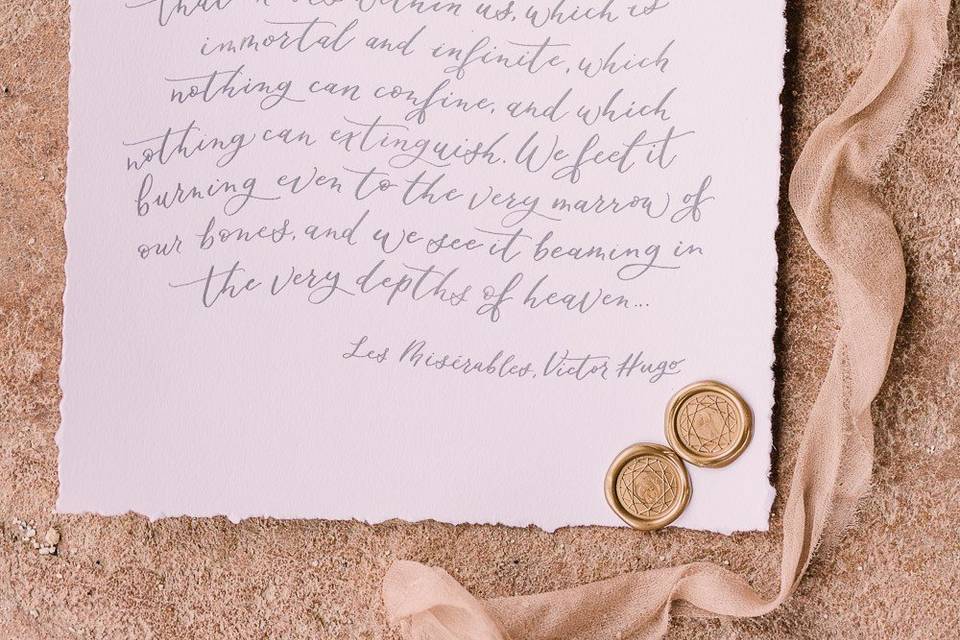 that lives within us, which is
immortal and infinite, which
nothing can confine, and which
nothing can extinguish. We feel it
burning even to the very marrow of
our bones, and we see it beaming in
the very depths of heaven...
Les Misérables, Victor Hugo